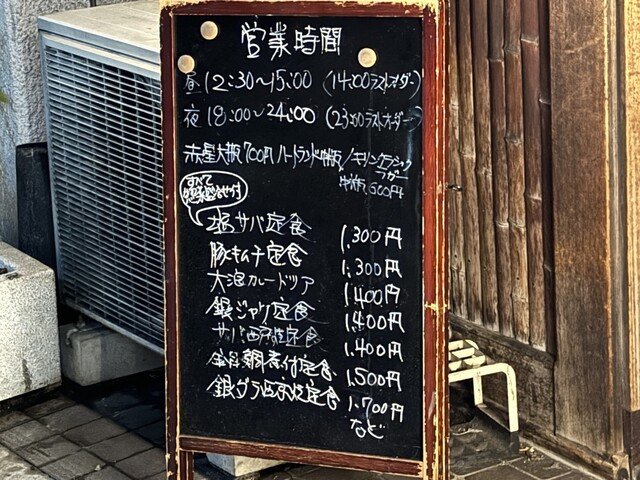 営業時間
昼 12:30〜15:00 (14:00ラストオーダー)
夜 18:00〜24:00 (23:00ラストオーダー)
赤星大瓶700円 ハートランド中瓶/キリンクラシック
ラガー
中瓶 600円
すべて
塩サバ定食 1,300円
豚キムチ定食 1,300円
大泡カレードツア 1,400円
銀ジャケ定食 1,400円
サバ西京焼定食 1,400円
金目鯛煮付定食 1,500円
銀ダラ西京焼定食 1,700円
など